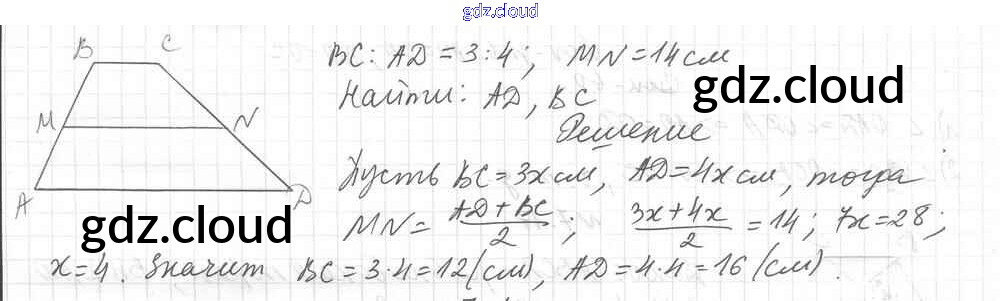 gdz.cloud
B C
BC : AD = 3 : 4 ; MN = 14 см
Найти: AD, BC
gdz.cloud
Решение
M N
Пусть BC = 3x см, AD = 4x см, тогда
A D
MN = (AD + BC)/2 ; (3x + 4x)/2 = 14 ; 7x = 28 ;
gdz.cloud
x = 4. Значит BC = 3·4 = 12 (см), AD = 4·4 = 16 (см).